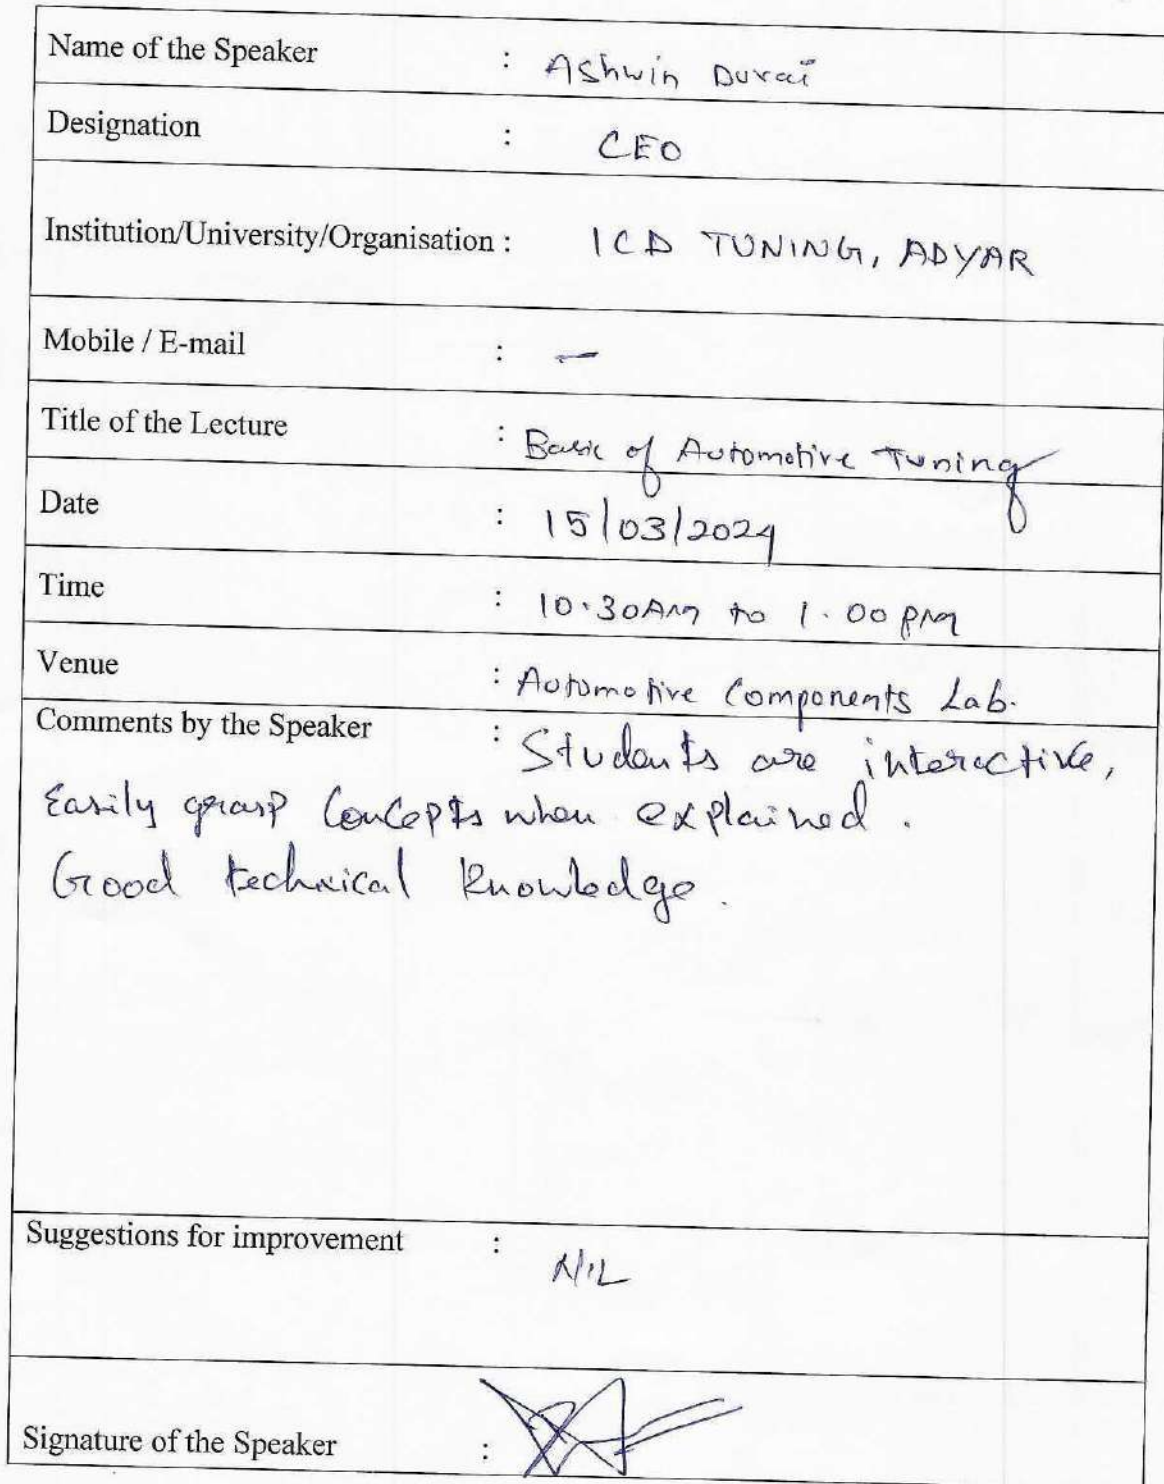 Name of the Speaker : Ashwin Durai
Designation : CEO
Institution/University/Organisation : ICD TUNING, ADYAR
Mobile / E-mail : —
Title of the Lecture : Basic of Automotive Tuning
Date : 15/03/2024
Time : 10.30AM to 1.00 PM
Venue : Automotive Components Lab.
Comments by the Speaker : Students are interactive,
Easily grasp Concepts when explained.
Good technical knowledge.
Suggestions for improvement : NIL
Signature of the Speaker :